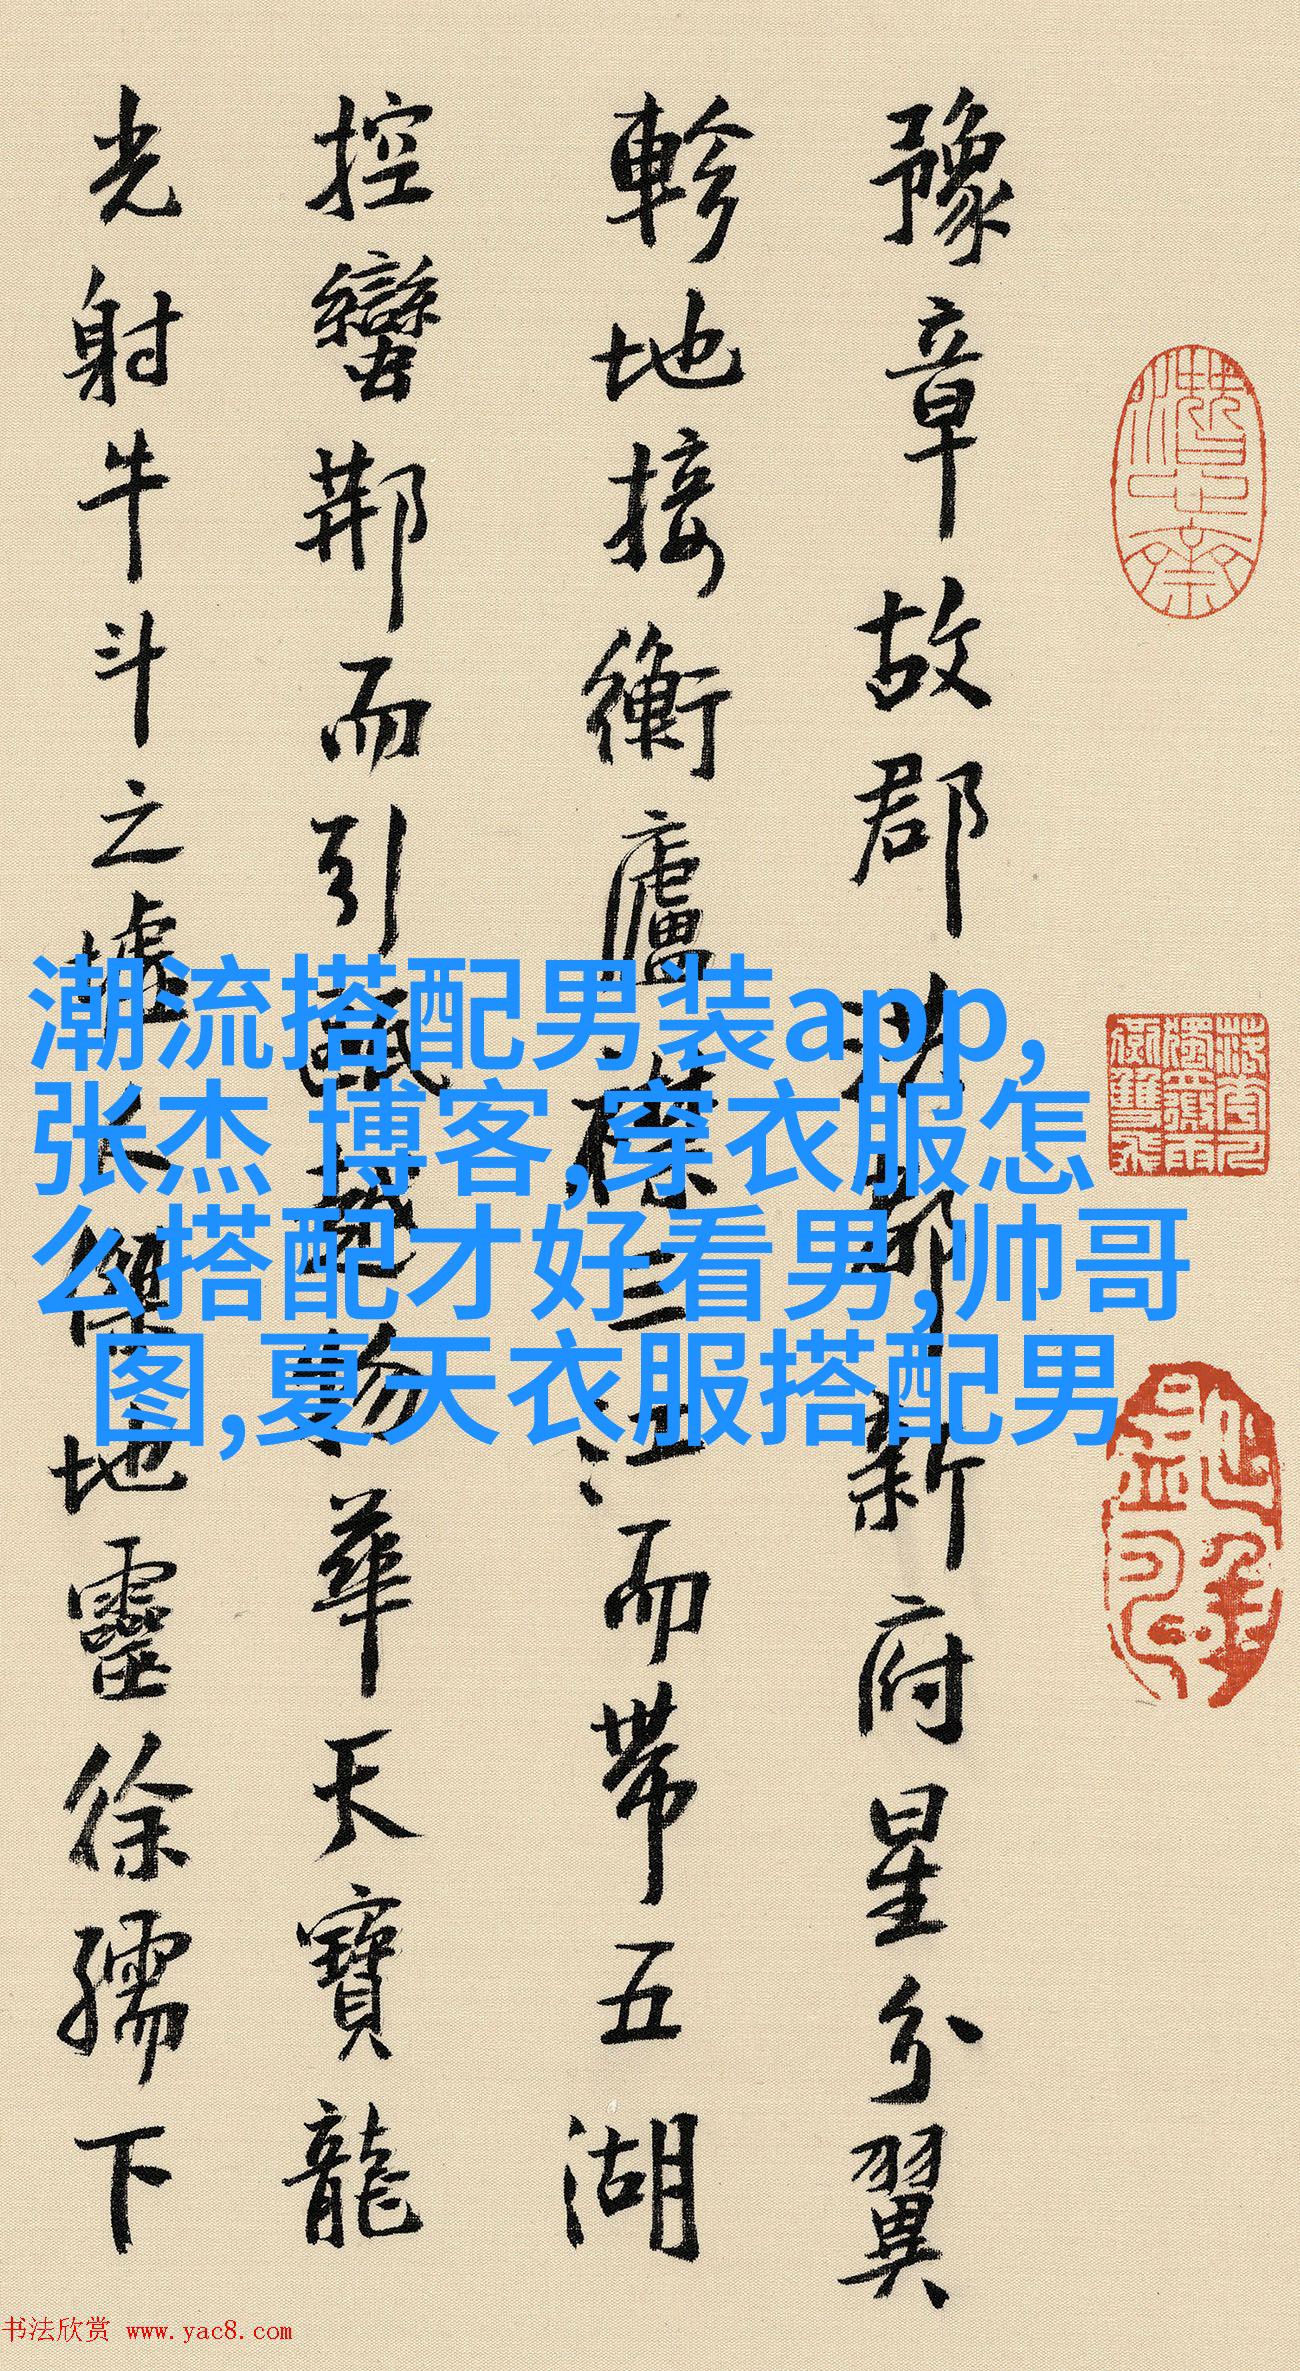 豫章故郡洪都新府星分翼
軫地接衡廬襟三江而帶五湖
控蠻荊而引甌越物華天寶龍
光射牛斗之墟人傑地靈徐孺下
潮流搭配男装app,
张杰 博客,穿衣服怎
么搭配才好看男,帅哥
图,夏天衣服搭配男
书法欣赏 www.yac8.com